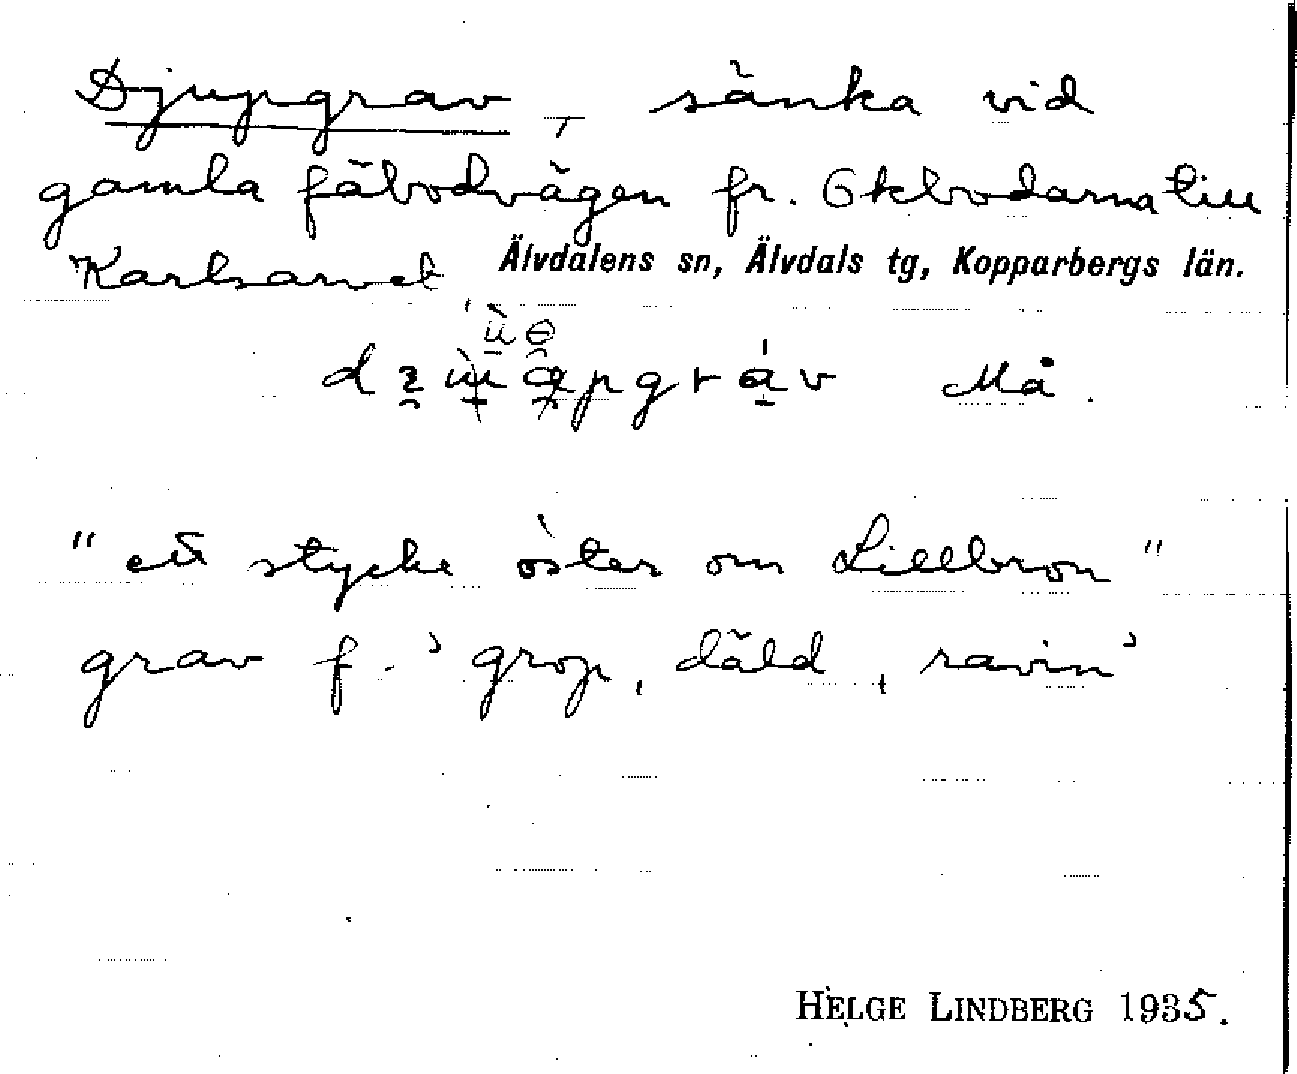 Djupgrav, sänka vid
gamla fäbodvägen fr. Okbodarna till
Karlsarvet Älvdalens sn, Älvdals tg, Kopparbergs län.
Må.
"ett stycke öster om Lillbron"
grav f. 'grop, däld, ravin'
HELGE LINDBERG 1935.